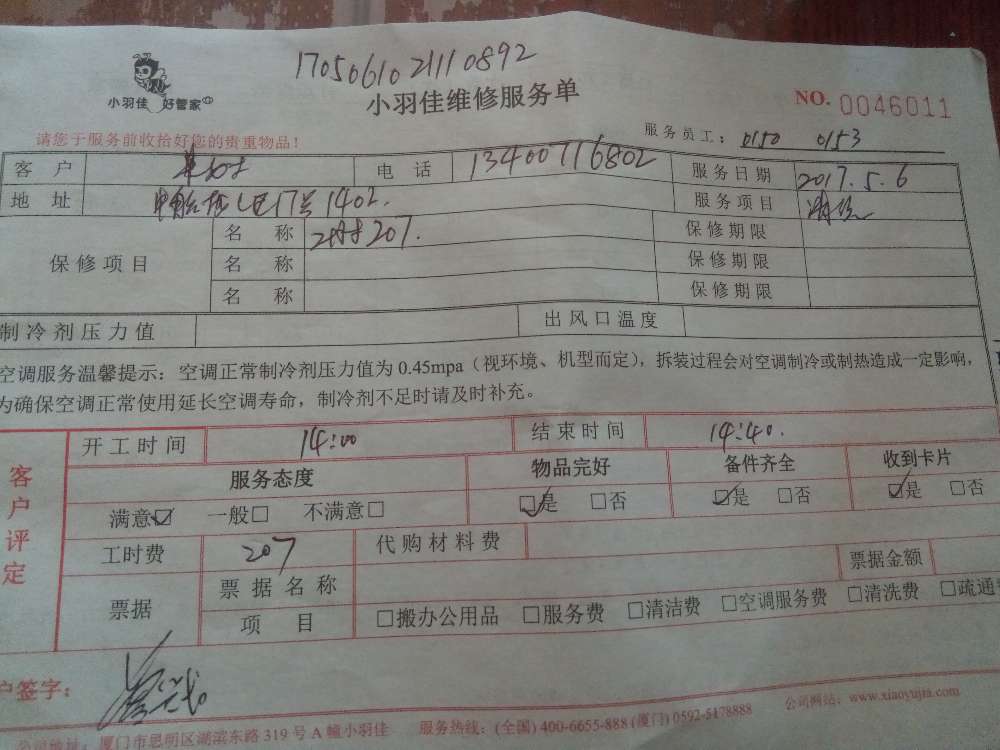 17050610211110892
小羽佳 好管家
小羽佳维修服务单
NO. 0046011
请您于服务前收拾好您的贵重物品！
服务员工： 0150 0153
客 户 电 话 13400716802 服务日期 2017.5.6
地 址 17号1402. 服务项目 清洗
保修项目
名 称 207. 保修期限
名 称 保修期限
名 称 保修期限
制冷剂压力值 出风口温度
空调服务温馨提示：空调正常制冷剂压力值为 0.45mpa（视环境、机型而定），拆装过程会对空调制冷或制热造成一定影响，
为确保空调正常使用延长空调寿命，制冷剂不足时请及时补充。
客户评定
开工时间 14:00 结束时间 14:40.
服务态度 物品完好 备件齐全 收到卡片
满意☑ 一般□ 不满意□ ☑是 □否 ☑是 □否 ☑是 □否
工时费 207 代购材料费
票据 票据名称 票据金额
项 目 □搬办公用品 □服务费 □清洁费 □空调服务费 □清洗费 □疏通
户签字：
公司地址：厦门市思明区湖滨东路 319 号 A 幢小羽佳 服务热线：(全国) 400-6655-888 (厦门) 0592-5178888 公司网站：www.xiaoyujia.com